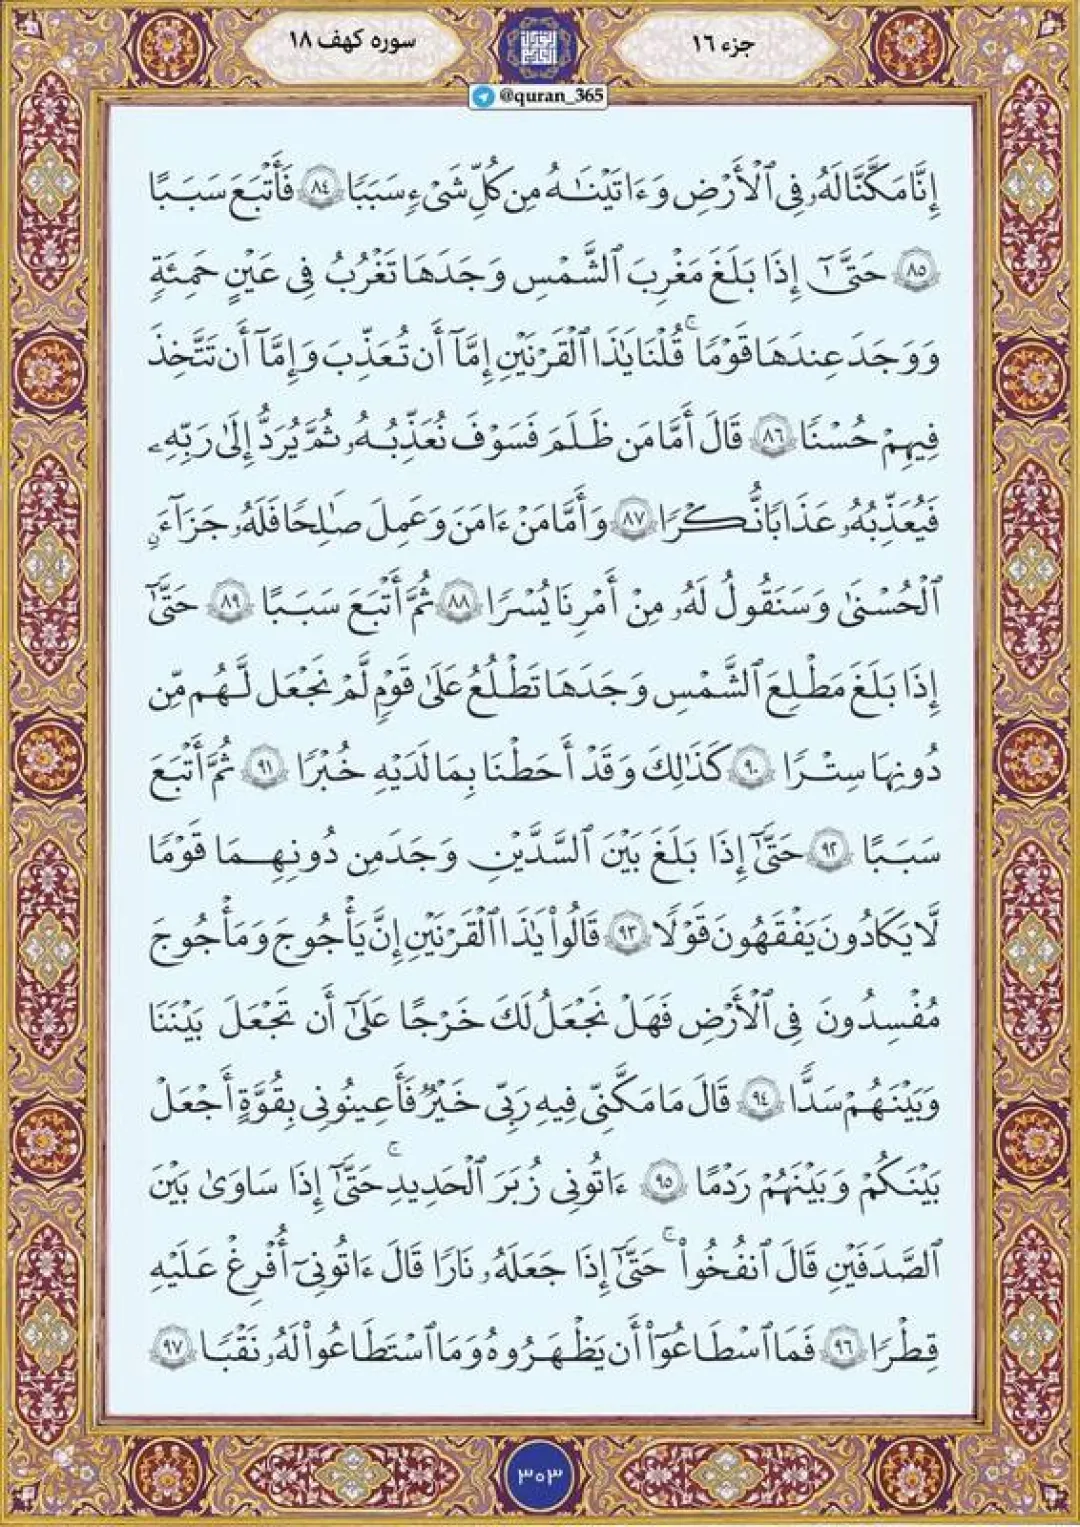 جزء ۱۶
سوره کهف ۱۸
@quran_365
إِنَّا مَكَّنَّا لَهُۥ فِى ٱلْأَرْضِ وَءَاتَيْنَـٰهُ مِن كُلِّ شَىْءٍ سَبَبًا ٨٤ فَأَتْبَعَ سَبَبًا
٨٥ حَتَّىٰٓ إِذَا بَلَغَ مَغْرِبَ ٱلشَّمْسِ وَجَدَهَا تَغْرُبُ فِى عَيْنٍ حَمِئَةٍ
وَوَجَدَ عِندَهَا قَوْمًا ۗ قُلْنَا يَـٰذَا ٱلْقَرْنَيْنِ إِمَّآ أَن تُعَذِّبَ وَإِمَّآ أَن تَتَّخِذَ
فِيهِمْ حُسْنًا ٨٦ قَالَ أَمَّا مَن ظَلَمَ فَسَوْفَ نُعَذِّبُهُۥ ثُمَّ يُرَدُّ إِلَىٰ رَبِّهِۦ
فَيُعَذِّبُهُۥ عَذَابًا نُّكْرًا ٨٧ وَأَمَّا مَنْ ءَامَنَ وَعَمِلَ صَـٰلِحًا فَلَهُۥ جَزَآءً
ٱلْحُسْنَىٰ وَسَنَقُولُ لَهُۥ مِنْ أَمْرِنَا يُسْرًا ٨٨ ثُمَّ أَتْبَعَ سَبَبًا ٨٩ حَتَّىٰٓ
إِذَا بَلَغَ مَطْلِعَ ٱلشَّمْسِ وَجَدَهَا تَطْلُعُ عَلَىٰ قَوْمٍ لَّمْ نَجْعَل لَّهُم مِّن
دُونِهَا سِتْرًا ٩٠ كَذَٰلِكَ وَقَدْ أَحَطْنَا بِمَا لَدَيْهِ خُبْرًا ٩١ ثُمَّ أَتْبَعَ
سَبَبًا ٩٢ حَتَّىٰٓ إِذَا بَلَغَ بَيْنَ ٱلسَّدَّيْنِ وَجَدَ مِن دُونِهِمَا قَوْمًا
لَّا يَكَادُونَ يَفْقَهُونَ قَوْلًا ٩٣ قَالُوا۟ يَـٰذَا ٱلْقَرْنَيْنِ إِنَّ يَأْجُوجَ وَمَأْجُوجَ
مُفْسِدُونَ فِى ٱلْأَرْضِ فَهَلْ نَجْعَلُ لَكَ خَرْجًا عَلَىٰٓ أَن تَجْعَلَ بَيْنَنَا
وَبَيْنَهُمْ سَدًّا ٩٤ قَالَ مَا مَكَّنِّى فِيهِ رَبِّى خَيْرٌ فَأَعِينُونِى بِقُوَّةٍ أَجْعَلْ
بَيْنَكُمْ وَبَيْنَهُمْ رَدْمًا ٩٥ ءَاتُونِى زُبَرَ ٱلْحَدِيدِ ۖ حَتَّىٰٓ إِذَا سَاوَىٰ بَيْنَ
ٱلصَّدَفَيْنِ قَالَ ٱنفُخُوا۟ ۖ حَتَّىٰٓ إِذَا جَعَلَهُۥ نَارًا قَالَ ءَاتُونِىٓ أُفْرِغْ عَلَيْهِ
قِطْرًا ٩٦ فَمَا ٱسْطَـٰعُوٓا۟ أَن يَظْهَرُوهُ وَمَا ٱسْتَطَـٰعُوا۟ لَهُۥ نَقْبًا ٩٧
۳۰۳